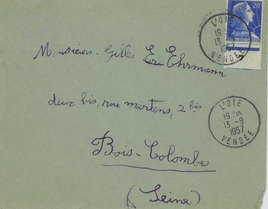 L'OIE
19 15
13 -9
1957
VENDÉE
20F
Monsieur Gilles Ehrmann
deux bis, rue mertens, 2 bis
Bois-Colombe
(Seine)
L'OIE
19 15
13 -9
1957
VENDÉE